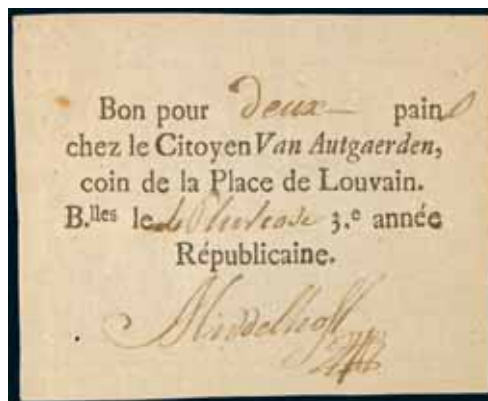 Bon pour deux pains
chez le Citoyen Van Autgaerden,
coin de la Place de Louvain.
B.lles le Pluviose 3.e année
Républicaine.